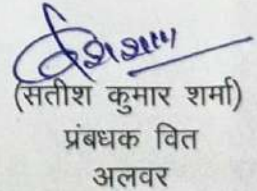 (सतीश कुमार शर्मा)
प्रंबधक वित
अलवर